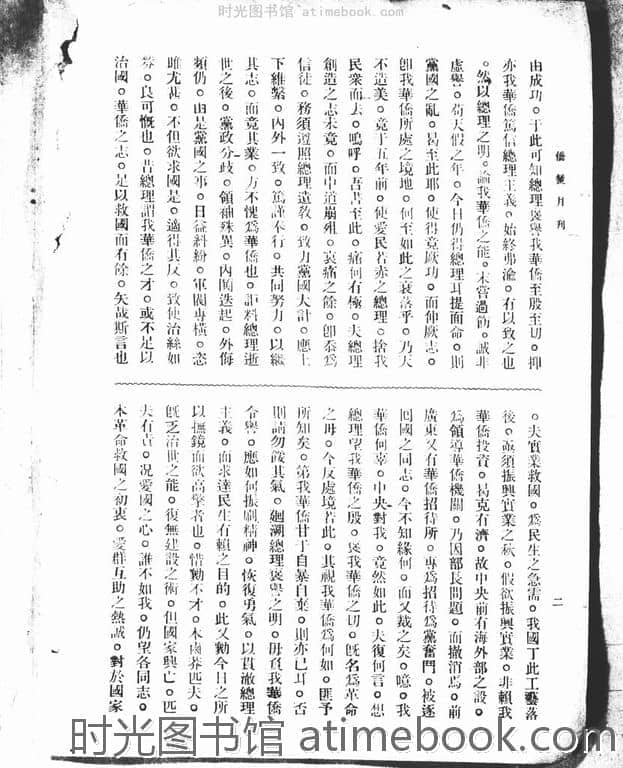 时光图书馆 atimebook.com
僑聲月刊
二
由成功。于此可知總理褒譽我華僑至殷至切。抑
亦我華僑篤信總理主義。始終弗渝。有以致之也
。然以總理之明。諭我華僑之能。未嘗過勳。誠非
虛譽。苟天假之年。今日仍得總理耳提面命。則
黨國之亂。曷至此耶。使得竟厥功。而伸厥志。
卽我華僑所處之境地。何至如此之衰落乎。乃天
不造美。竟于五年前。使愛民若赤之總理。捨我
民衆而去。嗚呼。吾書至此。痛何有極。夫總理
創造之志未竟。而中道崩殂。哀痛之餘。卽忝爲
信徒。務須遵照總理遺敎。致力黨國大計。應上
下維繫。內外一致。篤謹奉行。共同努力。以繼
其志。而竟其業。方不愧爲華僑也。詎料總理逝
世之後。黨政分歧。領袖殊異。內鬨迭起。外侮
頻仍。由是黨國之事。日益糾紛。軍閥專橫。恣
睢尤甚。不但欲求國是。適得其反。致使治絲如
棼。良可慨也。昔總理謂我華僑之才。或不足以
治國。華僑之志。足以救國而有餘。矢哉斯言也
。夫實業救國。爲民生之急需。我國丁此工藝落
後。亟須振興實業之秋。假欲振興實業。非賴我
華僑投資。曷克有濟。故中央前有海外部之設。
爲領導華僑機關。乃因部長問題。而撤消焉。前
廣東又有華僑招待所。專爲招待爲黨奮鬥。被逐
回國之同志。今不知緣何。而又裁之矣。噫。我
華僑何辜。中央對我。竟然如此。夫復何言。想
總理望我華僑之殷。褒我華僑之切。旣名爲革命
之母。今反處境若此。其視我華僑爲何如。匪予
所知矣。第我華僑甘于自暴自棄。則亦已耳。否
則請勿餒其氣。廻溯總理褒譽之明。毋負我華僑
令譽。應如何振刷精神。恢復勇氣。以貫澈總理
主義。而求達民生有賴之目的。此又勳今日之所
以撫鏡而欲高擎者也。惜勳不才。本鹵莽匹夫。
旣乏治世之能。復無建設之術。但國家興亡。匹
夫有責。况愛國之心。誰不如我。仍望各同志。
本革命救國之初衷。愛群互助之熱誠。對於國家
时光图书馆 atimebook.com